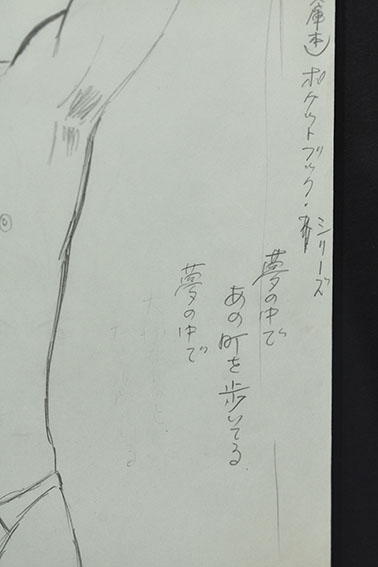 庫本）ポケットブック・シリーズ
夢の中で
あの町を歩いてる
夢の中で